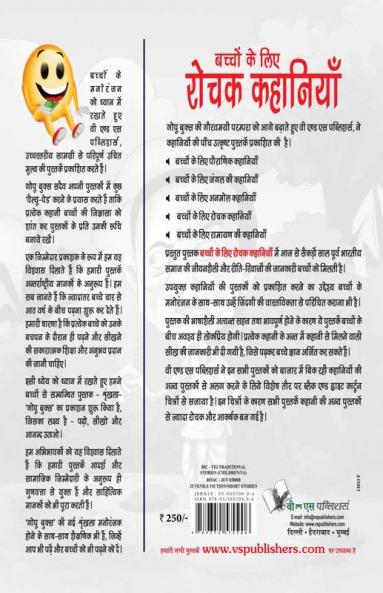 बच्चों के
मनोरंजन
को ध्यान में
रखते हुए
वी एण्ड एस
पब्लिशर्स,
उच्चस्तरीय सामग्री से परिपूर्ण उचित
मूल्य की पुस्तकें प्रकाशित करते है।
गोपू बुक्स सदैव अपनी पुस्तकों में कुछ
'वैल्यू-ऐड' करने के प्रयास करते हैं ताकि
प्रत्येक कहानी बच्चों की जिज्ञासा को
शांत कर पुस्तकों के प्रति उनकी रूचि
बनाये रखें।
एक जिम्मेदार प्रकाशक के रूप में हम यह
विश्वास दिलाते हैं कि हमारी पुस्तकें
अन्तर्राष्ट्रीय मानकों के अनुरूप हैं। हम
सब जानते हैं कि ज्यादातर बच्चे चार से
आठ वर्ष के बीच पढ़ना शुरू कर देते हैं।
हमारी धारणा है कि प्रत्येक बच्चे को उनके
बचपन के दौरान ही पढ़ने और सीखने
की सकारात्मक शिक्षा और अनुभव प्रदान
की जानी चाहिए।
इसी ध्येय को ध्यान में रखते हुए हमने
बच्चों से सम्बन्धित पुस्तक - शृंखला-
'गोपू बुक्स' का प्रकाशन शुरू किया है,
जिसका लक्ष्य है - पढ़ो, सीखो और
आनन्द उठाओ।
हम अभिभावकों को यह विश्वास दिलाते
हैं कि हमारी पुस्तकें आदर्श और
सामाजिक जिम्मेदारी के अनुरूप ही
गुणवत्ता से युक्त हैं और साहित्यिक
मानकों को भी पूरा करती हैं।
'गोपू बुक्स' की नई शृंखला मनोरंजक
होने के साथ-साथ शैक्षणिक भी हैं, जिन्हें
आप भी पढ़ें और बच्चों को भी पढ़ने को दें।
बच्चों के लिए
रोचक कहानियाँ
गोपू बुक्स की गौरवमयी परम्परा को आगे बढ़ाते हुए वी एण्ड एस पब्लिशर्स, ने
कहानियों की पाँच उत्कृष्ट पुस्तकें प्रकाशित की है।
बच्चों के लिए पौराणिक कहानियाँ
बच्चों के लिए जंगल की कहानियाँ
बच्चों के लिए अनमोल कहानियाँ
बच्चों के लिए रोचक कहानियाँ
बच्चों के लिए रामायण की कहानियाँ
प्रस्तुत पुस्तक बच्चों के लिए रोचक कहानियाँ में आज से सैंकड़ों साल पूर्व भारतीय
समाज की जीवनशैली और रीति-रिवाजों की जानकारी बच्चों को मिलती है।
उपयुक्त कहानियों की पुस्तकों को प्रकाशित करने का उद्देश्य बच्चों के
मनोरंजन के साथ-साथ उन्हें जिंदगी की वास्तविकता से परिचित कराना भी है।
पुस्तक की भाषाशैली अत्यन्त सहज तथा भावपूर्ण होने के कारण ये पुस्तकें बच्चों के
बीच अवश्य ही लोकप्रिय होगी। प्रत्येक कहानी के अन्त में कहानी से मिलने वाली
सीख की जानकारी भी दी गयी है, जिसे पढ़कर बच्चे ज्ञान अर्जित कर सकते हैं।
वी एण्ड एस पब्लिशर्स ने इन सभी पुस्तकों को बाजार में बिक रही कहानियों की
अन्य पुस्तकों से अलग करने के लिये विशेष तौर पर ब्लैक एण्ड ह्वाइट कार्टून
चित्रों से सजाया है। इन चित्रों के कारण सभी पुस्तकें कहानी की अन्य पुस्तकों
से ज्यादा रोचक और आकर्षक बन गई है।
BIC - YBJ TRADITIONAL
STORIES (CHILDREN'S)
BISAC - JUV 038000
JUVENILE FICTION/SHORT STORIES
₹ 250/-
वी एण्ड एस पब्लिशर्स
Website: www.vspublishers.com
दिल्ली • हैदराबाद • मुम्बई
हमारी सभी पुस्तकें www.vspublishers.com पर उपलब्ध है